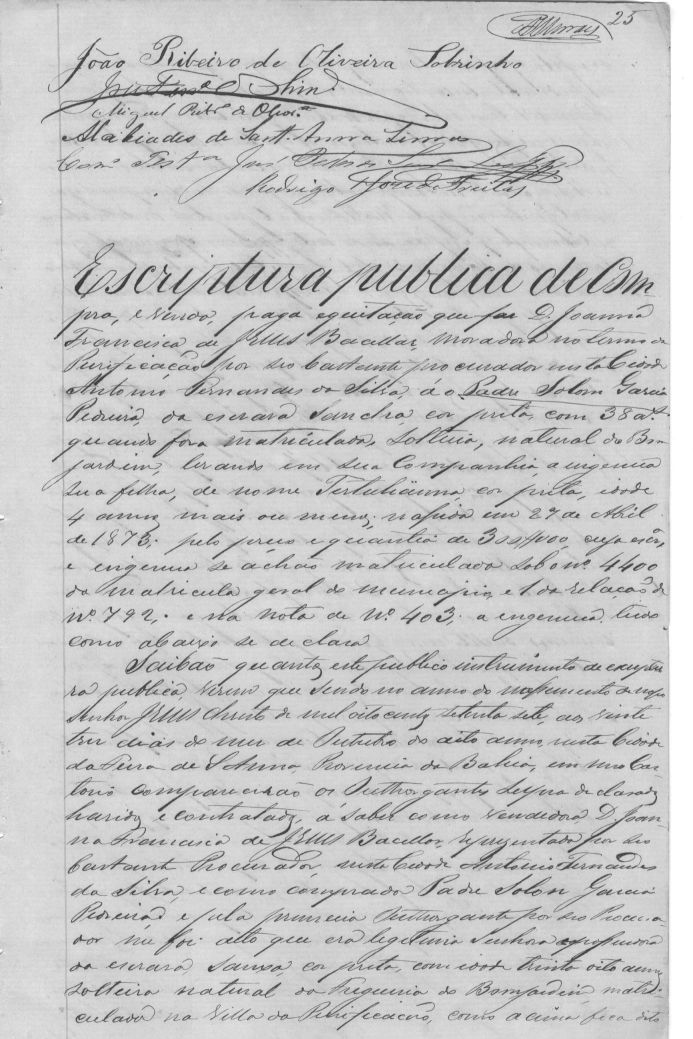 25
João Ribeiro de Oliveira Sobrinho
Miguel Ribr.º de Olivr.ª
Alcibiades de Sant. Anna Limma
Como Test.ª José
Rodrigo José de Freitas
Escriptura publica de Com
pra, e venda, paga equitação que faz D. Joanna
Francisca de JESUS Bacellar, moradora no termo da
Purificação por seo bastante procurador nesta Cidade
Antonio Fernandes da Silva, á o Padre Solom Garcia
Pedreira, da escrava Sancha, cor preta, com 38 an.ˢ
quando fora matriculada, solteira, natural do Bom
jardim, levando em sua companhia a ingenua
sua filha, de nome Tertulianna, cor preta, idade
4 annos, mais ou menos, nascida em 27 de Abril
de 1873, pelo preço e quantia de cuja escrᵃ
e ingenua se áchão matriculada sob o nº 4400
da matricula geral do municipio, e 1 da relação de
Nº 792. e na nota de Nº 403. a ingenua, tudo
como abaixo se declara
Saibão quantos este publico instrumento de escriptu
ra publica virem que sendo no anno do nascimento de nosso
Senhor JESUS Christo de mil oito centos setenta sete, aos vinte
tres dias do mez de Outubro do dito anno, nesta Cidade
da Feira de S. Anna, Provincia da Bahia, em meo Car
torio comparecerão os Outhorgantes declarados
havidos e contratados, á saber como vendedora D. Joan
na Francisca de JESUS Bacellar, representada por seo
bastante Procurador nesta Cidade Antonio Fernandes
da Silva, e como comprador Padre Solon Garcia
Pedreira e pela primeira Outhorgante por seo Procura
dor me foi dito que era legitima Senhora e possuidora
da escrava Sanxa cor preta, com idade trinta oito annos
solteira natural da Freguesia do Bomjardim, matri
culada na Villa da Purificação, como acima fica dito